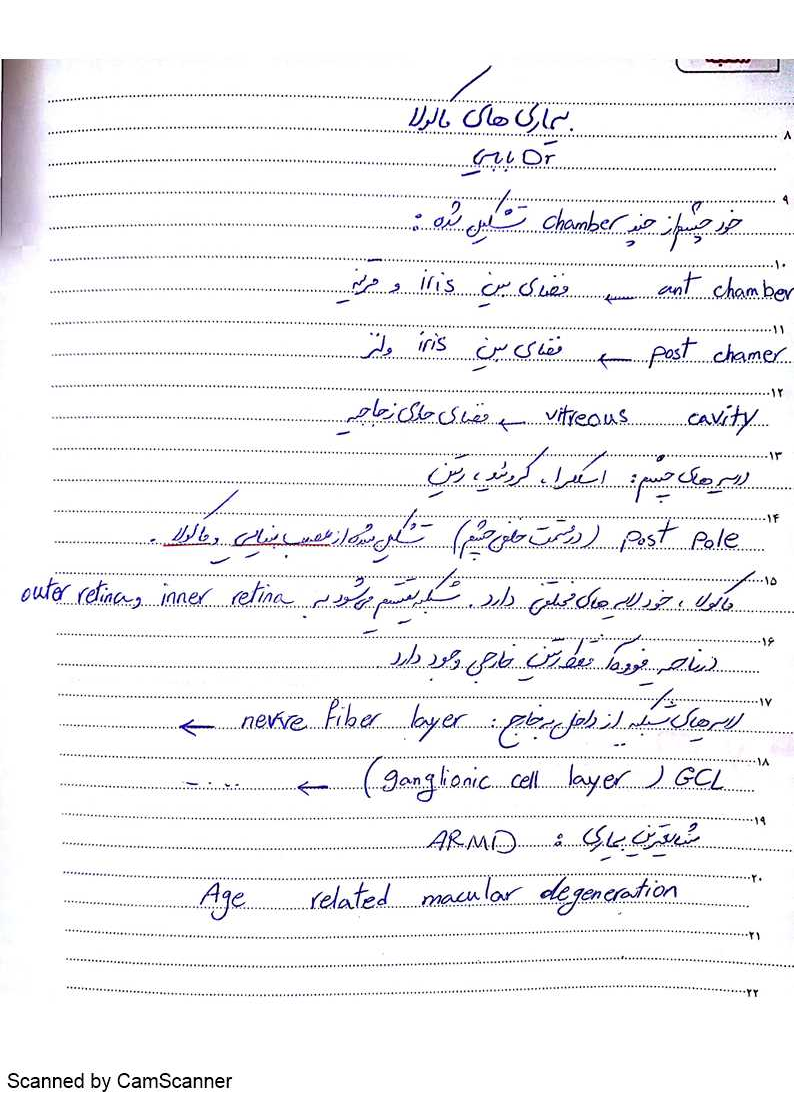 بیماری های ماکولا
Dr بابایی
۸
۹
خود چشم از چند chamber تشکیل شده :
۱۰
ant chamber ← فضای بین iris و قرنیه
۱۱
post chamer ← فضای بین iris و لنز
۱۲
vitreous cavity ← فضای حاوی زجاجیه
۱۳
لایه های چشم : اسکلرا ، کروئید ، رتین
۱۴
post pole (در قسمت خلفی چشم) تشکیل شده از عصب بینایی و ماکولا .
۱۵
ماکولا ، خود لایه های مختلفی دارد . شبکیه تقسیم می شود به inner retina و outer retina
۱۶
در ناحیه فووه آ فقط رتین خارجی وجود دارد
۱۷
لایه های شبکیه از داخل به خارج : nerve fiber layer ←
۱۸
GCL ( ganglionic cell layer ) ← - . . .
۱۹
شایعترین بیماری : ARMD
۲۰
Age related macular degeneration
۲۱
۲۲
Scanned by CamScanner